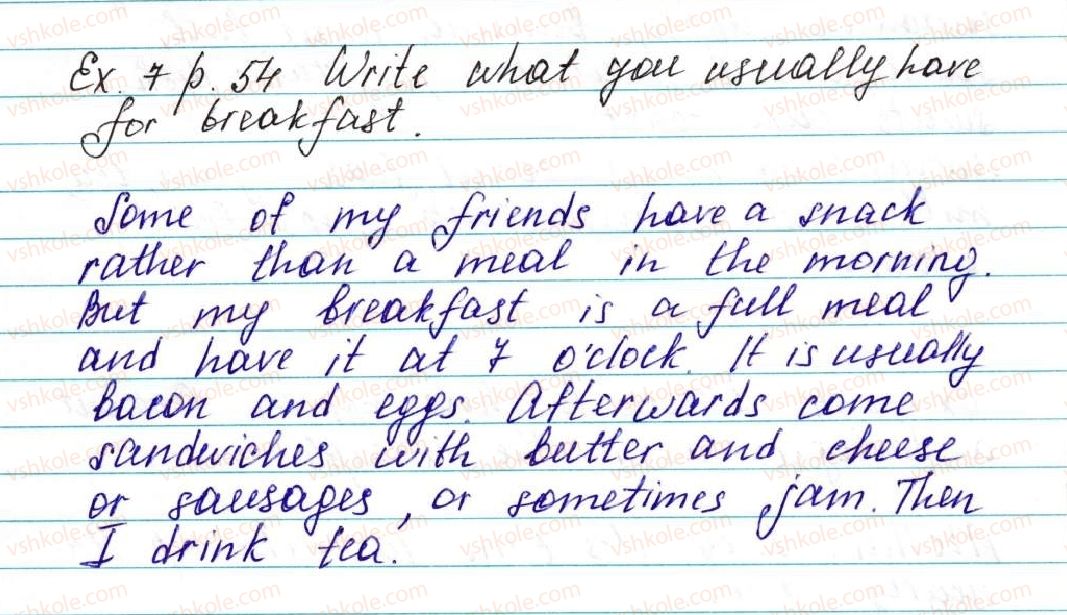 Ex. 7 p. 54 Write what you usually have
for breakfast.
Some of my friends have a snack
rather than a meal in the morning.
But my breakfast is a full meal
and have it at 7 o'clock. It is usually
bacon and eggs. Afterwards come
sandwiches with butter and cheese
or sausages, or sometimes jam. Then
I drink tea.